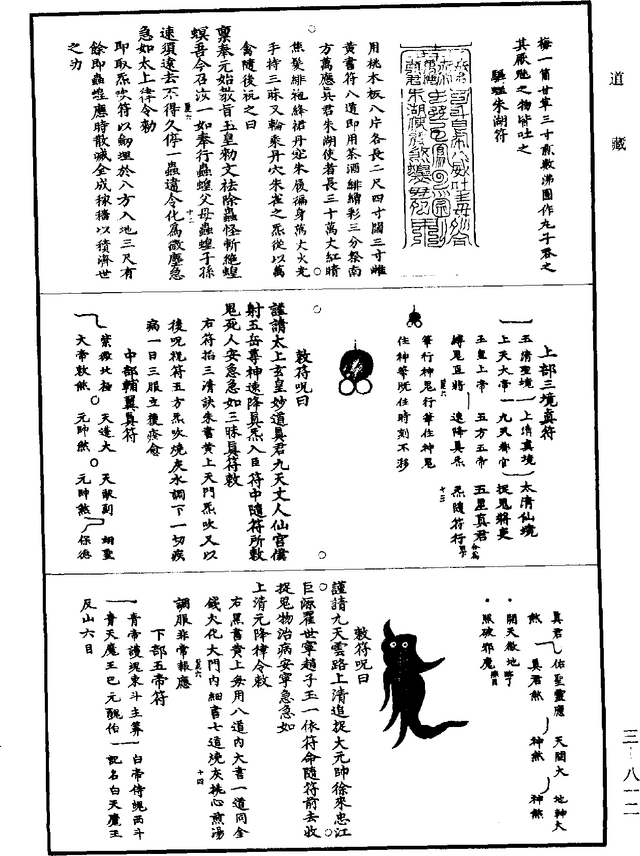 道藏
梅一箇甘草三寸煎數沸圓作丸子吞之
其厭魁之物皆吐之
驅蝗朱湖符
用桃木板八片各長二尺四寸闊三寸雌
黃書符八道即用茶酒緋繒彩三分祭南
方萬應真君朱湖使者長三十萬丈紅睛
焦髮緋袍絳裙丹空朱履徧身萬丈火光
手持三昧又輪乘丹穴朱雀之炁從以萬
禽隨後祝之曰
稟奉元始敕旨玉皇勑文祛除蟲怪斬絕蝗
螟吾今召汝一如奉行蟲蝗父母蟲蝗子孫
速須遠去不得久停一蟲違令化爲微塵急
急如太上律令勑
即取炁吹符以劒埋於八方入地三尺有
餘即蟲蝗應時散滅全成稼穡以積濟世
之功
上部三境真符
玉清聖境
上清真境
太清仙境
上天大帝
九天都官
捉鬼將吏
玉皇上帝
五方五帝
五星真君
縛鬼直將
速降真炁
炁隨符行
筆行神鬼行筆住神鬼
住神筆既住時刻不移
敕符呪曰
謹請太上玄皇妙道真君九天丈人仙官僕
射五岳尊神速降真炁入臣符中隨符所敕
鬼死人安急急如三昧真符敕
右符掐三清訣朱書黃上天門炁吹又以
後呪祝符五方炁吹燒灰水調下一切疾
病一日三服立獲痊愈
中部輔翼真符
紫微北極
天蓬大
天猷副
翊聖
大帝敕煞
元帥煞
元帥煞
保德
真君
佑聖靈應
天關大
地神大
煞
真君煞
神煞
神煞
開天徹地
照破邪魔
敕符呪曰
謹請九天雲路上清追捉大元帥徐來忠江
巨源翟世寧趙子玉一依符命隨符前去收
捉鬼物治病安寧急急如
上清元降律令敕
右黑書黃上每用八道內大書一道同金
錢火化大門內細書七道燒灰桃心煎湯
調服非常報應
十四
下部五帝符
青帝護魂東斗主算
白帝侍魄西斗
青天魔王巴元醜伯
記名白天魔王
反山六目
三—八一二